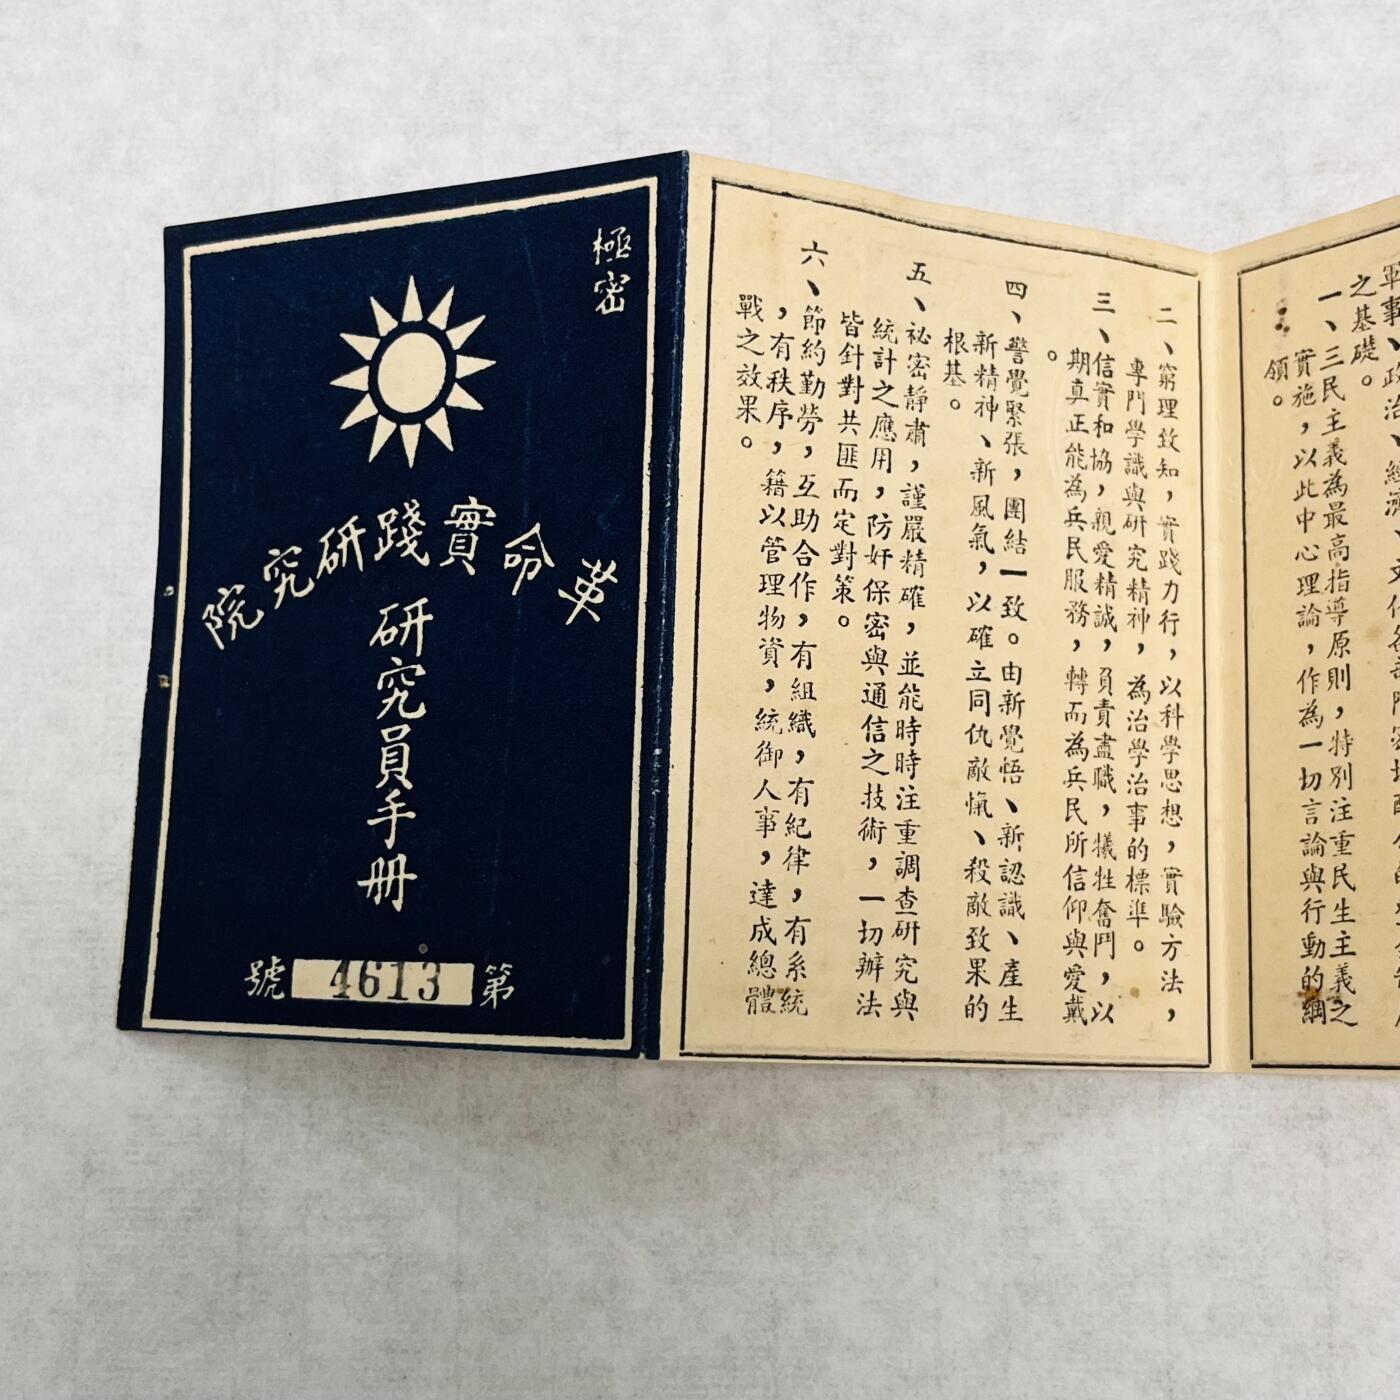 極密
革命實踐研究院
研究員手冊
第4613號
軍事、政治、經濟、文化各部門密切配合的
之基礎。
一、三民主義為最高指導原則，特別注重民生主義之
實施，以此中心理論，作為一切言論與行動的綱
領。
二、窮理致知，實踐力行，以科學思想，實驗方法，
專門學識與研究精神，為治學治事的標準。
三、信實和協，親愛精誠，負責盡職，犧牲奮鬥，以
期真正能為兵民服務，轉而為兵民所信仰與愛戴
。
四、警覺緊張，團結一致。由新覺悟、新認識、產生
新精神、新風氣，以確立同仇敵愾、殺敵致果的
根基。
五、祕密靜肅，謹嚴精確，並能時時注重調查研究與
統計之應用，防奸保密與通信之技術，一切辦法
皆針對共匪而定對策。
六、節約勤勞，互助合作，有組織，有紀律，有系統
，有秩序，藉以管理物資，統御人事，達成總體
戰之效果。